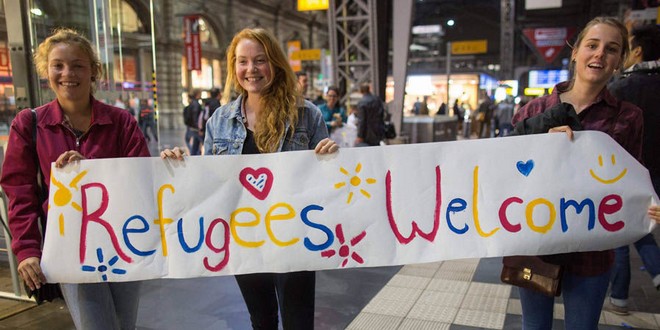 Refugees Welcome